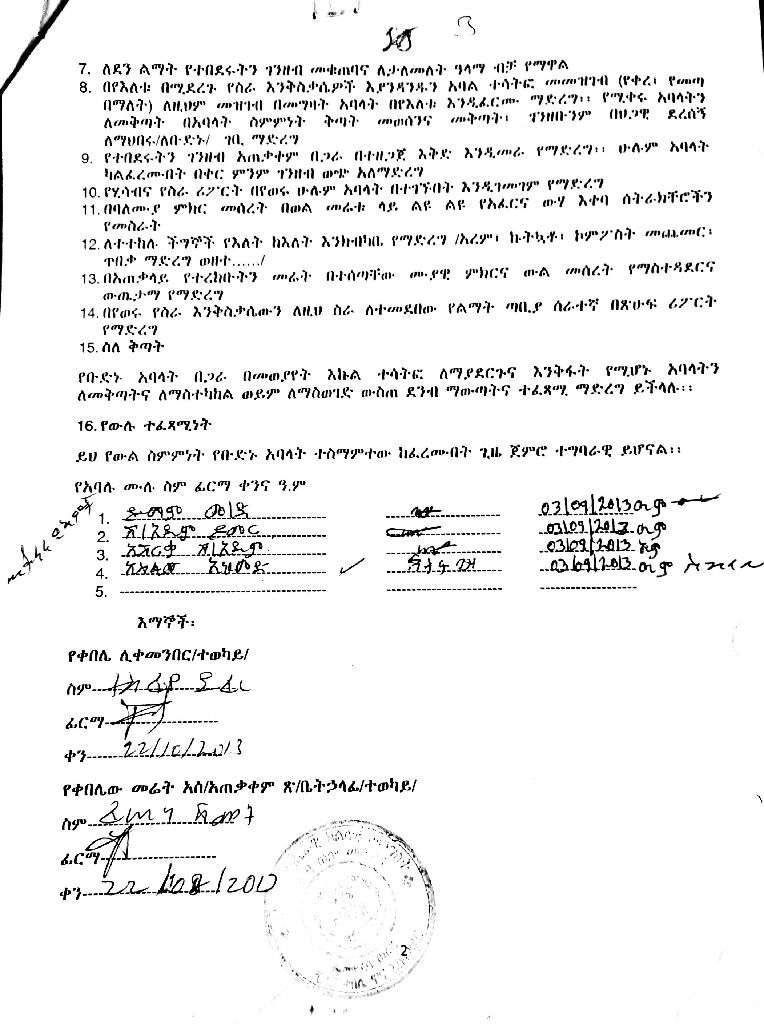 7. ለደን ልማት የተበደሩትን ገንዘብ መቁጠባና ለታለመለት ዓላማ ብቻ የማዋል
8. በየእለቱ በሚደረጉ የስራ እንቅስቃሴዎች እያንዳንዱን አባል ተሳትፎ መመዝገብ (የቀረ፣ የመጣ
በማለት) ለዚህም መዝገብ በመግባት አባላት በየእለቱ እንዲፈርሙ ማድረግ፡፡ የሚቀሩ አባላትን
ለመቅጣት በአባላት ስምምነት ቅጣት መወሰንና መቅጣት፣ ገንዘቡንም በህጋዊ ደረሰኝ
ለማህበሩ/ለቡድኑ/ ገቢ ማድረግ
9. የተበደሩትን ገንዘብ አጠቃቀም በጋራ በተዘጋጀ እቅድ እንዲመራ የማድረግ፡፡ ሁሉም አባላት
ካልፈረሙበት በቀር ምንም ገንዘብ ወጭ አለማድረግ
10. የሂሳብና የስራ ሪፖርት በየወሩ ሁሉም አባላት በተገኙበት እንዲገመገም የማድረግ
11. በባለሙያ ምክር መሰረት በወል መሬቱ ላይ ልዩ ልዩ የአፈርና ውሃ እቀባ ሰትራክቸሮችን
የመስራት
12. ለተተከሉ ችግኞች የእለት ከእለት እንክብካቤ የማድረግ /አረም፣ ኩትኳቶ፣ ኮምፖስት መጨመር፣
ጥበቃ ማድረግ ወዘተ....../
13. በአጠቃላይ የተረከቡትን መሬት በተሰጣቸው ሙያዊ ምክርና ውል መሰረት የማስተዳደርና
ውጤታማ የማድረግ
14. በየወሩ የስራ እንቅስቃሴውን ለዚህ ስራ ለተመደበው የልማት ጣቢያ ሰራተኛ በጽሁፍ ሪፖርት
የማድረግ
15. ስለ ቅጣት
የቡድኑ አባላት በጋራ በመወያየት እኩል ተሳትፎ ለማያደርጉና እንቅፋት የሚሆኑ አባላትን
ለመቅጣትና ለማስተካከል ወይም ለማስወገድ ውስጠ ደንብ ማውጣትና ተፈጻሚ ማድረግ ይችላሉ፡፡
16. የውሉ ተፈጻሚነት
ይህ የውል ስምምነት የቡድኑ አባላት ተስማምተው ከፈረሙበት ጊዜ ጀምሮ ተግባራዊ ይሆናል፡፡
የአባሉ ሙሉ ስም ፊርማ ቀንና ዓ.ም
1. 03/09/2013
2. 03/09/2013
3. 03/09/2013
4. አህመድ 03/09/2013
5.
እማኞች፡
የቀበሌ ሊቀመንበር/ተወካይ/
ስም
ፊርማ
ቀን 22/10/2013
የቀበሌው መሬት አስ/አጠቃቀም ጽ/ቤትኃላፊ/ተወካይ/
ስም
ፊርማ
ቀን
2